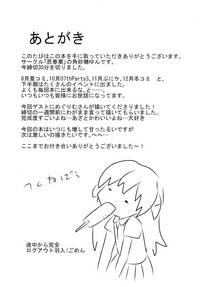 あとがき
このたびはこの本を手に取っていただきありがとうございます。
サークル「思春巣」の角砂糖ゆんです。
今締切30分を切りました。
8月夏コミ、10月07thParty3、11月ぷにケ、12月冬コミ　と、
下半期はたくさんのイベントに出ました。
よくも毎回本に出来るな、と…。
いつもいつも皆様にお世話になってます。
今回ゲストにめぐりむさんが描いてくださいました!
締切の一週間前にわがまま言って描いてもらいました。
完成度すごいよね…あざとかわいいよね…大好き
今回の本はいつにも増して甘ったるいですが
次は激しいの描きたいです。へへ…
ここまでお付き合いありがとうございました～!
つくねばう
途中から完全
ログアウト羽入(ごめん